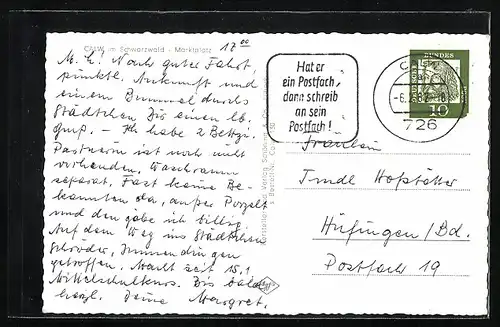 CALW im Schwarzwald · Marktplatz
17⁰⁰
M. L! Nach guter Fahrt,
pünktl. Ankunft und
einem Bummel durchs
Städtchen Dir einen lb.
Gruß. – Ich habe 2 Bettzi.
Partnerin ist noch nicht
vorhanden, Waschraum
separat. Fast keine Be-
kannten da, außer
und den gäbe ich billig.
Auf dem Weg ins Städtchen
Schröder, Immendingen
getroffen. Macht seit 15.1.
Mittelschulkurs. Bis bald
herzl. Deine Margret.
Hat er
ein Postfach,
dann schreib
an sein
Postfach!
CALW
726
DEUTSCHE
BUNDESPOST
10
Fräulein
Trudl Hofstätter
Hüfingen/Bd.
Postfach 19